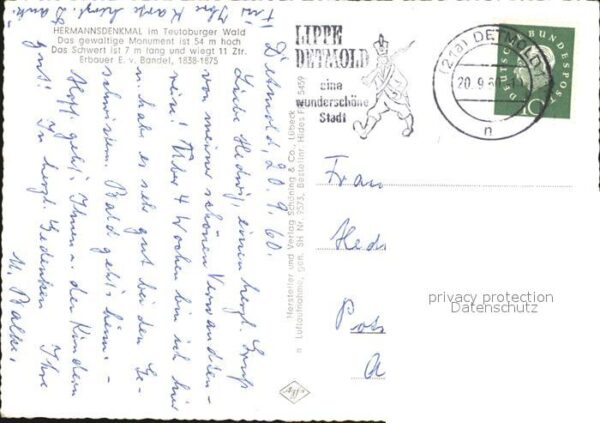 HERMANNSDENKMAL im Teutoburger Wald
Das gewaltige Monument ist 54 m hoch
Das Schwert ist 7 m lang und wiegt 11 Ztr.
Erbauer E. v. Bandel, 1838-1875
Für Ihre Karte herzl. Dank!
Detmold, 20.9.60.
Liebe Hedwig, einen herzl. Gruß
von meiner schönen Verwandten-
reise! Über 4 Wochen bin ich hier
u. hab es sehr gut bei den Ge-
schwistern. Bald geht's heim -
Hoff. geht's Ihnen u. den Kindern
gut! In herzl. Gedenken Ihre
M.
Hersteller und Verlag Schöning & Co., Lübeck
Luftaufnahme, gen. SH Nr. 9573, Bestellnr. Hides F 5459
LIPPE
DETMOLD
eine
wunderschöne
Stadt
(21a) DETMOLD 1
20.9.60
n
DEUTSCHE BUNDESPOST
10
Frau
Hed
Pots
A
privacy protection
Datenschutz